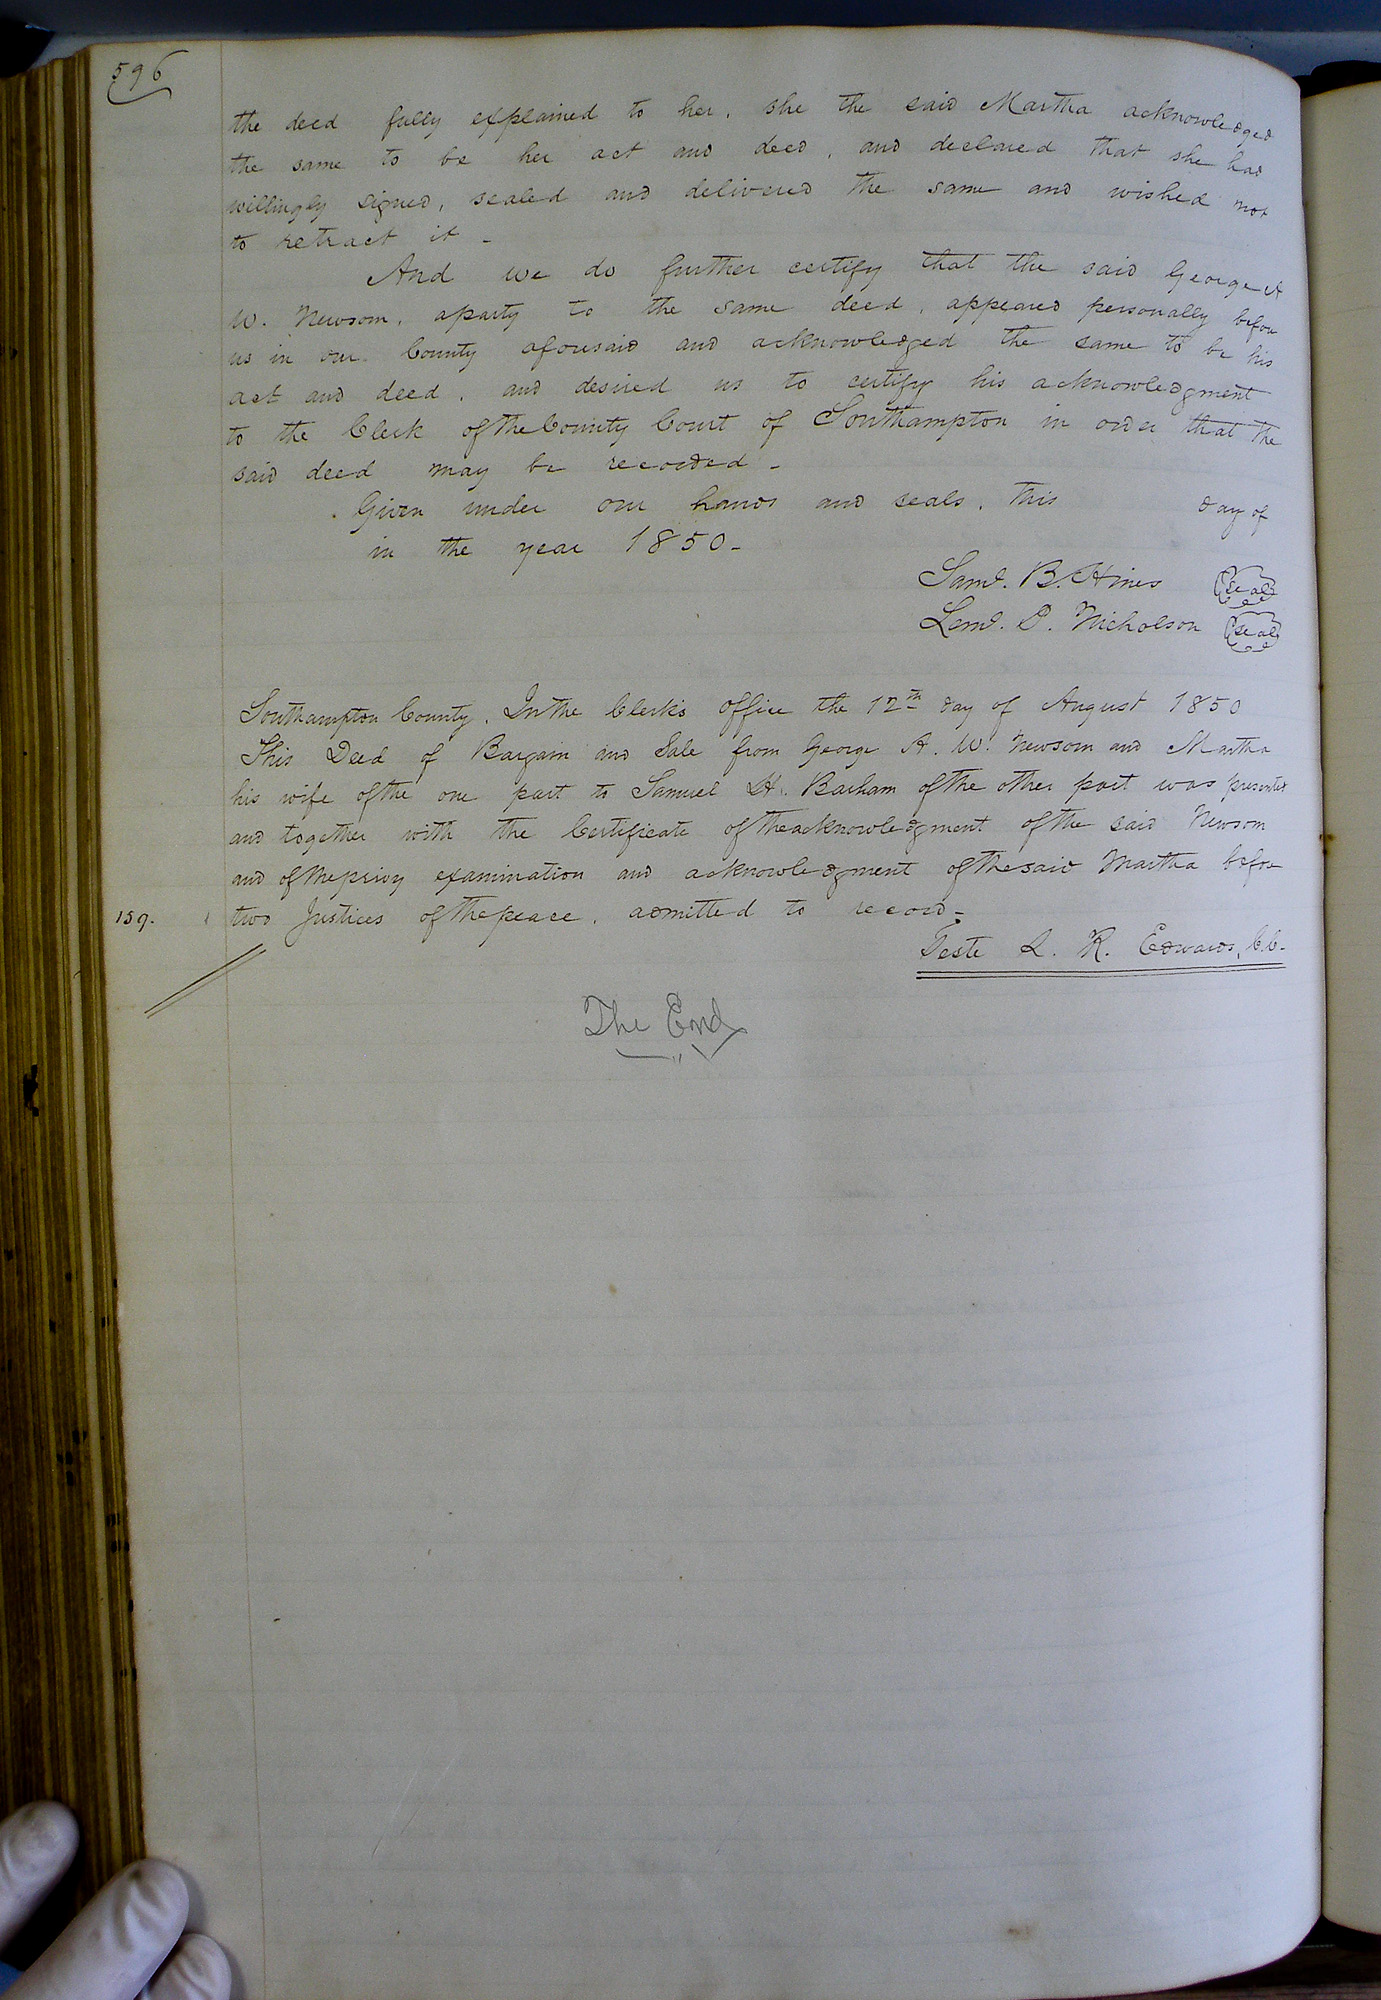 596
the deed fully explained to her, she the said Martha acknowledged
the same to be her act and deed, and declared that she had
willingly signed, sealed and delivered the same and wished not
to retract it -
And we do further certify that the said George A
W. Newsom, a party to the same deed, appeared personally before
us in our County aforesaid and acknowledged the same to be his
act and deed, and desired us to certify his acknowledgment
to the Clerk of the County Court of Southampton in order that the
said deed may be recorded -
Given under our hands and seals, this day of
in the year 1850-
Saml. B. Hines seal
Leml. P. Nicholson seal
Southampton County, In the Clerk's office the 12th day of August 1850
This Deed of Bargain and Sale from George A. W. Newsom and Martha
his wife of the one part to Samuel H. Barham of the other part was presented
and together with the Certificate of the acknowledgment of the said Newsom
and of the privy examination and acknowledgment of the said Martha before
159. two Justices of the peace, admitted to record-
Teste L. R. Edwards, C.C.
The End